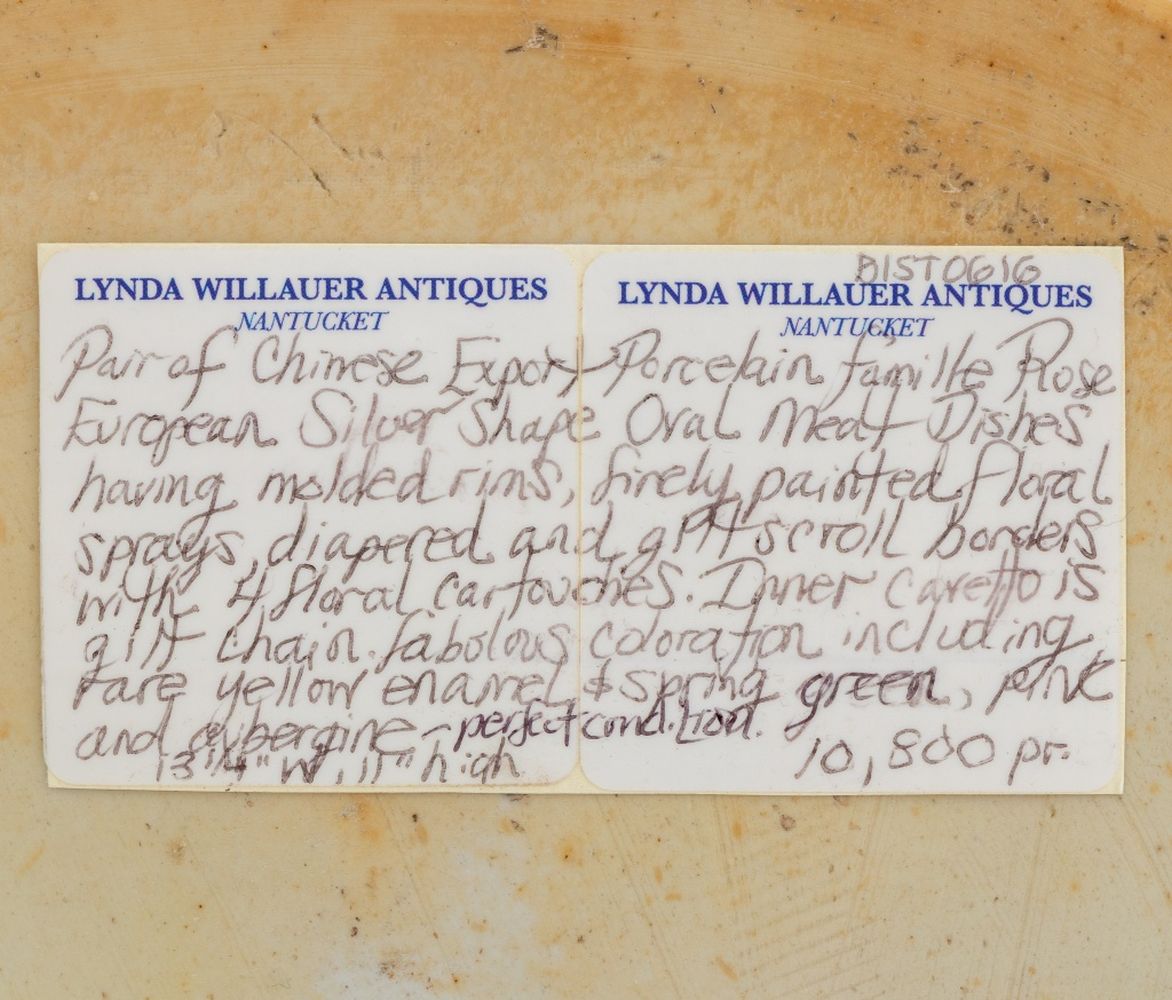 BIST0616
LYNDA WILLAUER ANTIQUES LYNDA WILLAUER ANTIQUES
NANTUCKET NANTUCKET
Pair of Chinese Export Porcelain famille Rose
European Silver Shape Oral Meat Dishes
having molded rims, finely painted floral
sprays, diapered and gilt scroll borders
with 4 floral cartouches. Inner Caretto is
gilt chain. fabolous coloration including
rare yellow enamel & spring green, pink
and aybergine - perfect condition.
13 1/4" W, 11" high 10,800 pr.